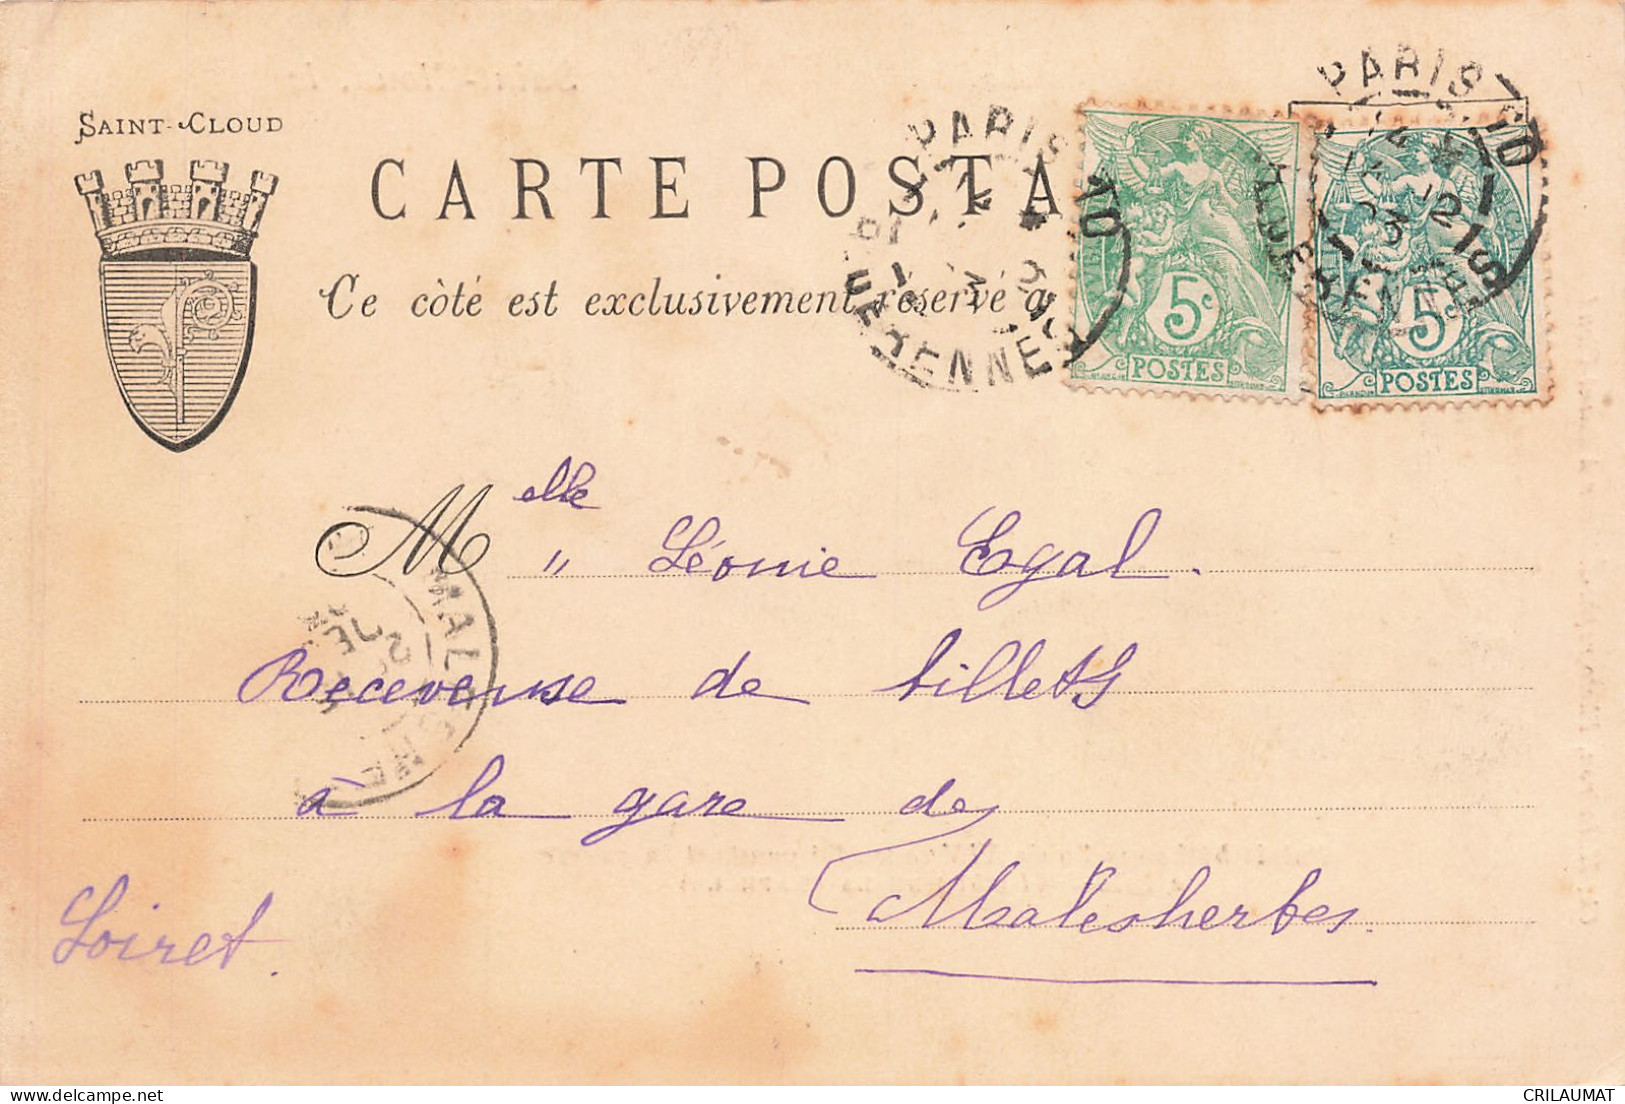 SAINT-CLOUD
CARTE POSTA
Ce côté est exclusivement réservé à
PARIS
VARENNES
PARIS
5c
POSTES
5c
POSTES
Melle " Léonie Egal.
Receveuse de billets
à la gare de
Malesherbes.
Loiret.
delcampe.net
CRILAUMAT